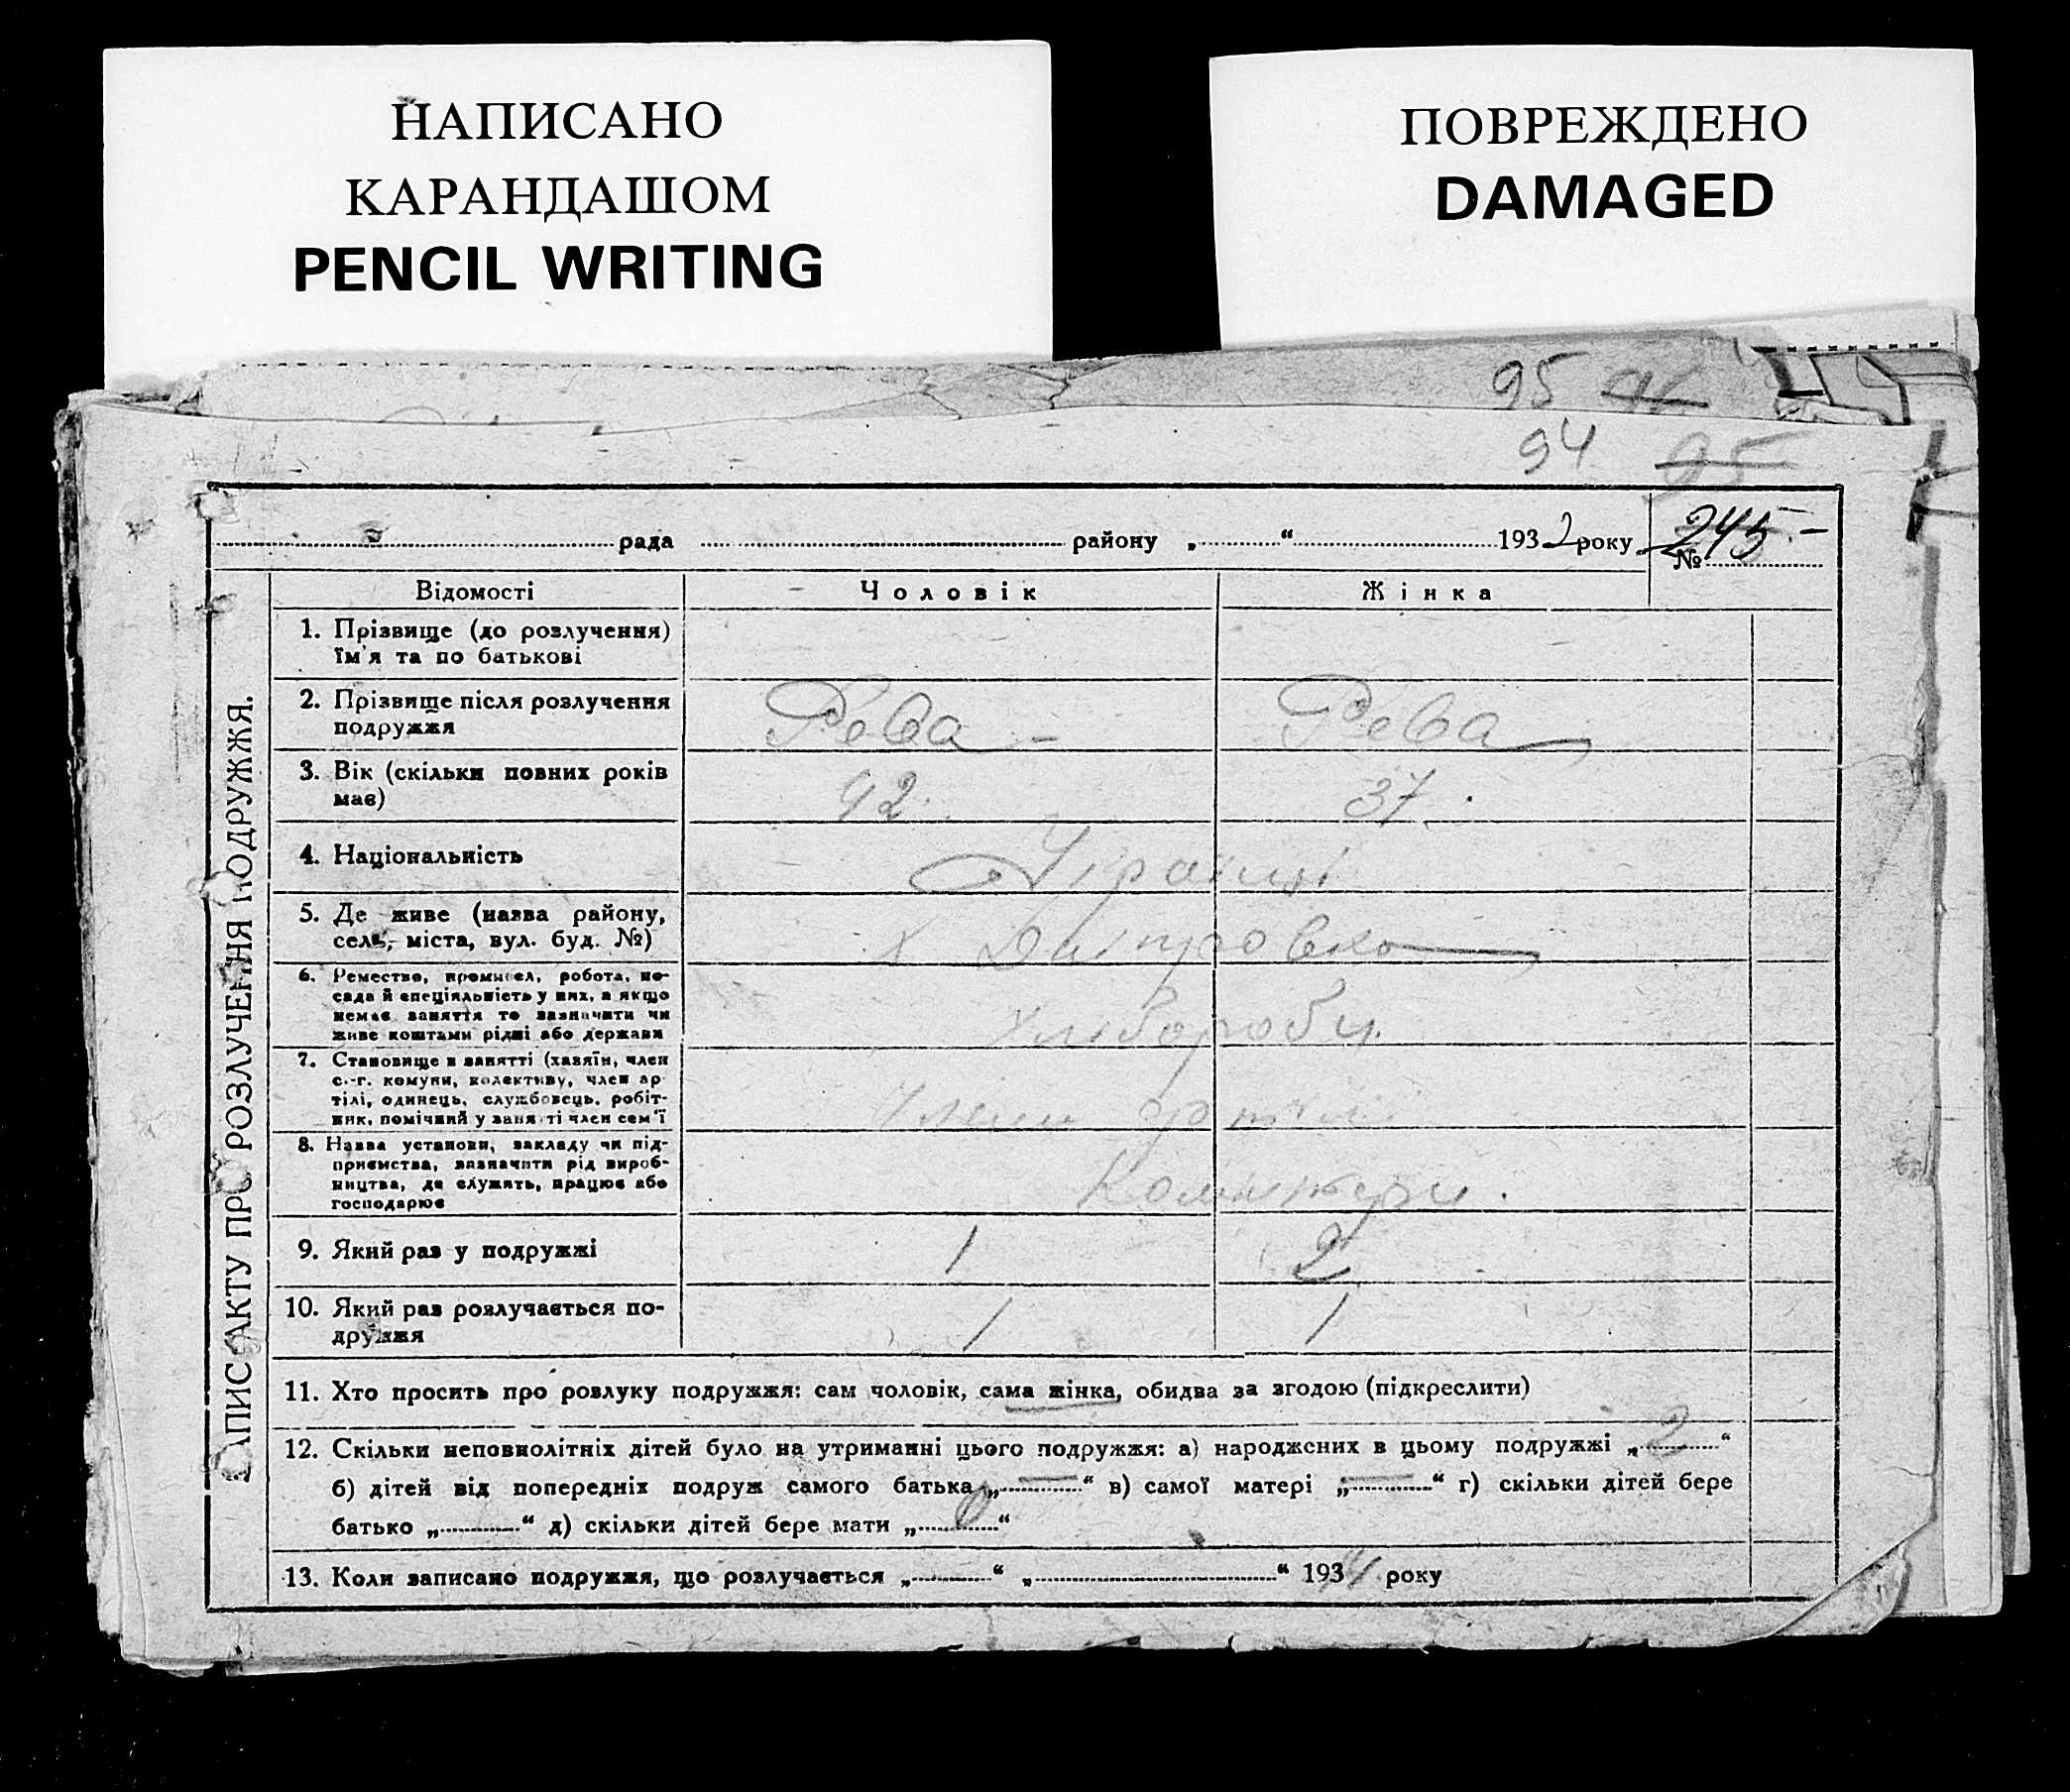 НАПИСАНО
КАРАНДАШОМ
PENCIL WRITING
ПОВРЕЖДЕНО
DAMAGED
95
94 95
рада района „ “ 1932 року
245.-
№
ЗАПИС АКТУ ПРО РОЗЛУЧЕННЯ ПОДРУЖЖЯ.
Відомості Чоловік Жінка
1. Прізвище (до розлучення)
їм'я та по батькові
2. Прізвище після розлучення
подружжя
Рева - Рева
3. Вік (скільки повних років
має)
42. 37.
4. Національність
5. Де живе (назва району,
села, міста, вул. буд. №)
х Дмітровка
6. Ремество, промисел, робота, по-
сада й спеціяльність у них, а якщо
немає заняття то зазначити чи
живе коштами рідні або держави
Хлібороби.
7. Становище в занятті (хазяїн, член
с.-г. комуни, колективу, член ар
тілі, одинець, службовець, робіт-
ник, помічний у занятті член сем'ї
Члени артілі
8. Назва установи, закладу чи під-
приємства, зазначити рід вироб-
ництва, де служить, працює або
господарює
9. Який раз у подружжі
1 2
10. Який раз розлучається по-
дружжя
1 1
11. Хто просить про розлуку подружжя: сам чоловік, сама жінка, обидва за згодою (підкреслити)
12. Скільки неповнолітніх дітей було на утриманні цього подружжя: а) народжених в цьому подружжі „ 2 “
б) дітей від попередніх подруж самого батька „ — “ в) самої матері „ — “ г) скільки дітей бере
батько „ “ д) скільки дітей бере мати „ “
13. Коли записано подружжя, що розлучається „ “ „ “ 193 року